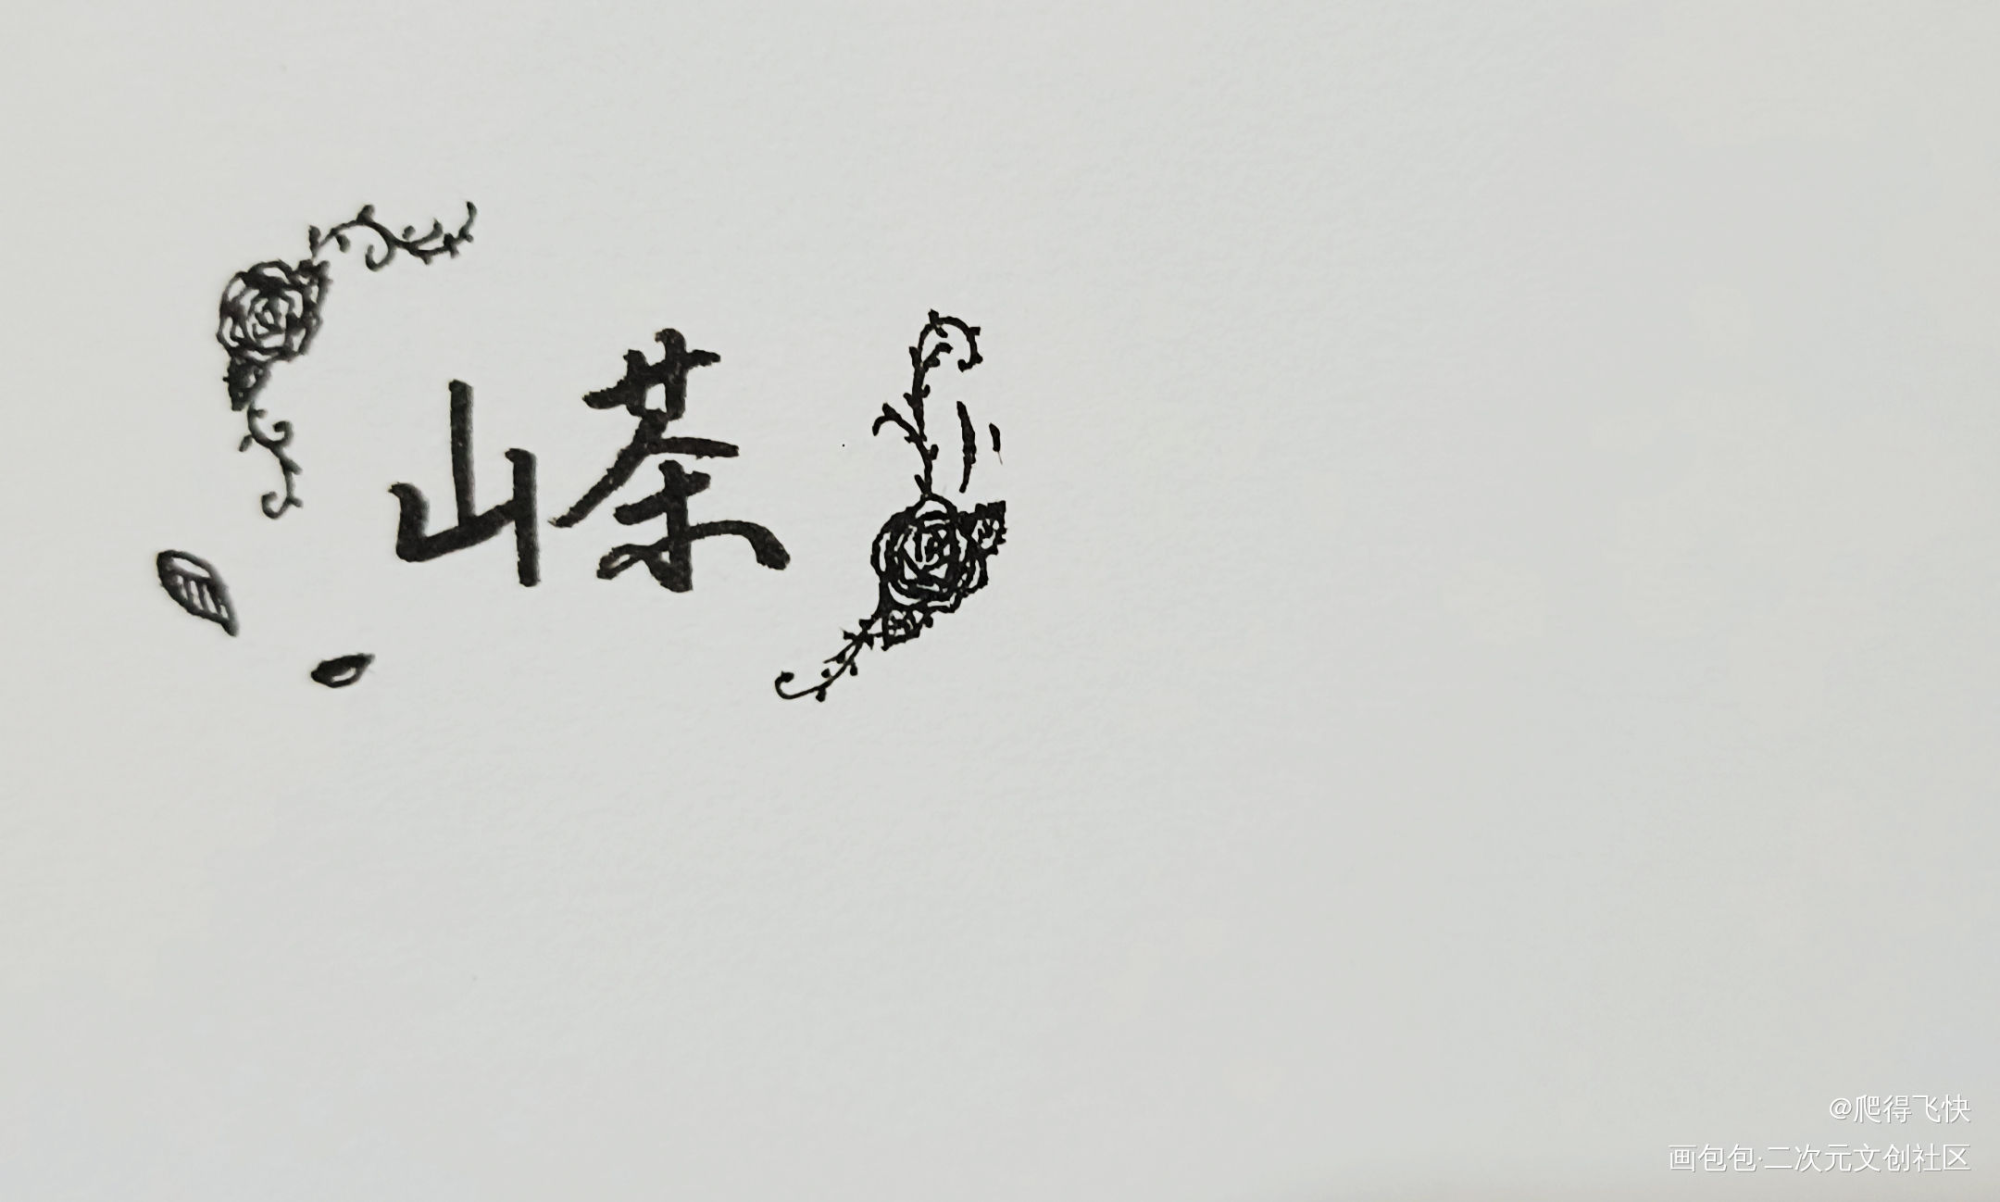 山茶
@爬得飞快
画包包·二次元文创社区